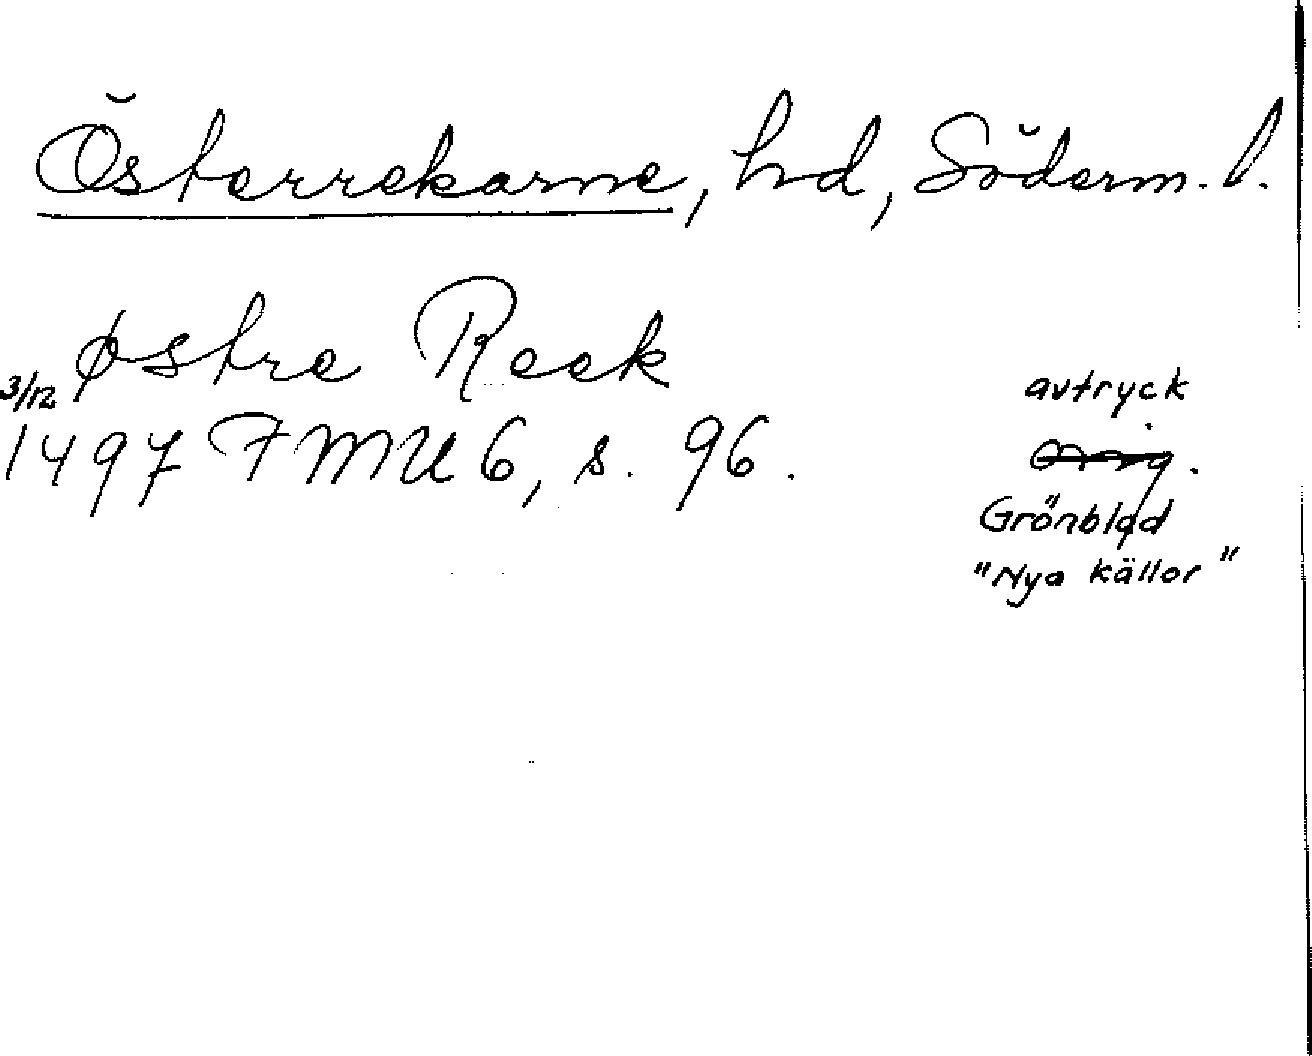 Österrekarne, hd, Söderm. l.
østre Reek
3/12
1497 FMU 6, s. 96.
avtryck
orig.
Grönblad
"Nya källor"